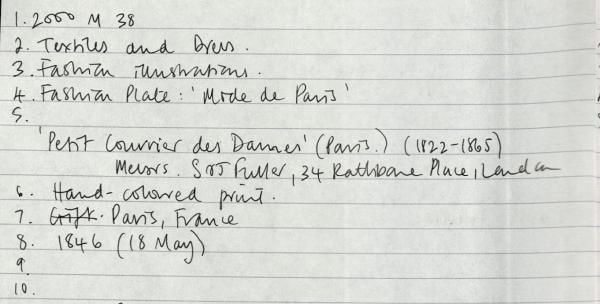 1. 2000 M 38
2. Textiles and Dress.
3. Fashion illustrations.
4. Fashion Plate: 'Mode de Paris'
5.
'Petit Courrier des Dames' (Paris.) (1822-1865)
Messrs. S & J Fuller, 34 Rathbone Place, London
6. Hand-coloured print.
7. Gift. Paris, France
8. 1846 (18 May)
9
10.